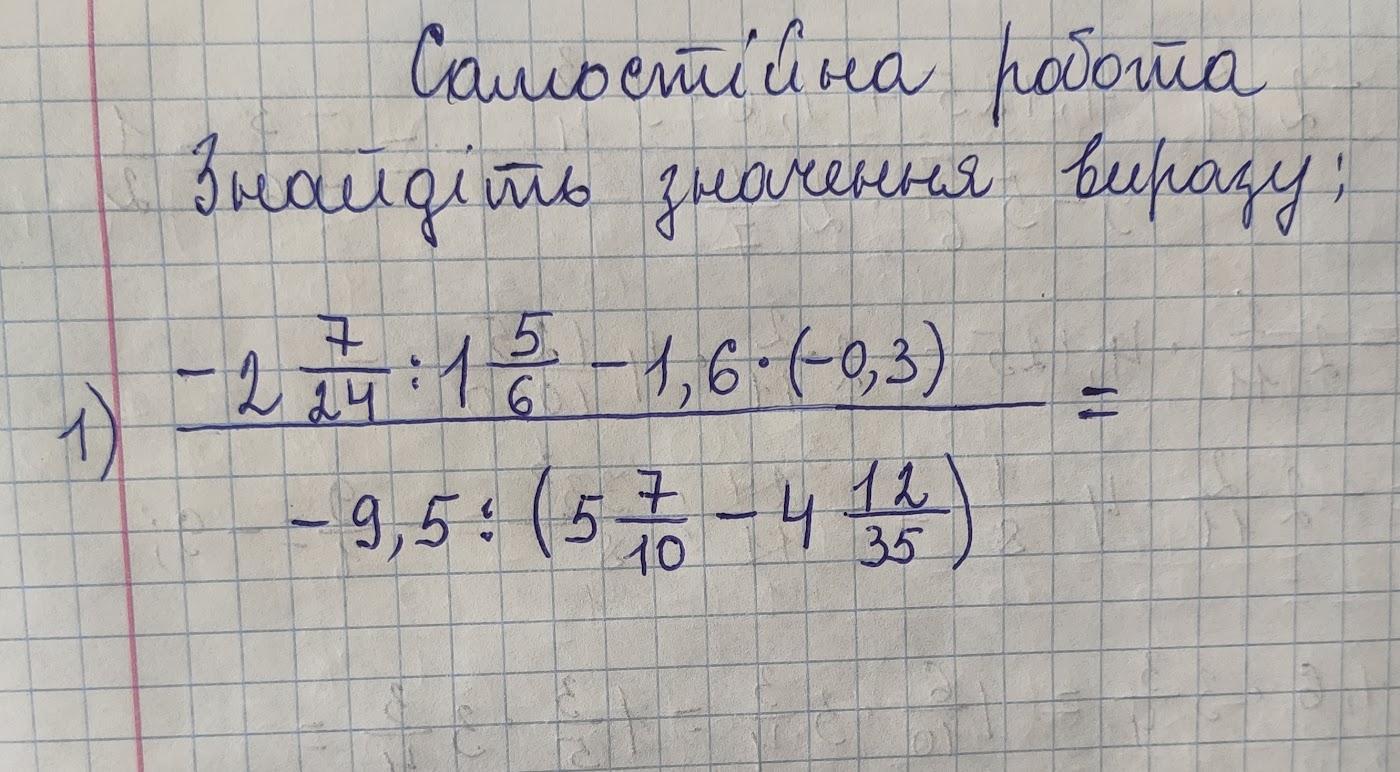 Самостійна робота
Знайдіть значення виразу:
1) \frac{-2\frac{7}{24} : 1\frac{5}{6} - 1,6 \cdot (-0,3)}{-9,5 : \left(5\frac{7}{10} - 4\frac{12}{35}\right)} =